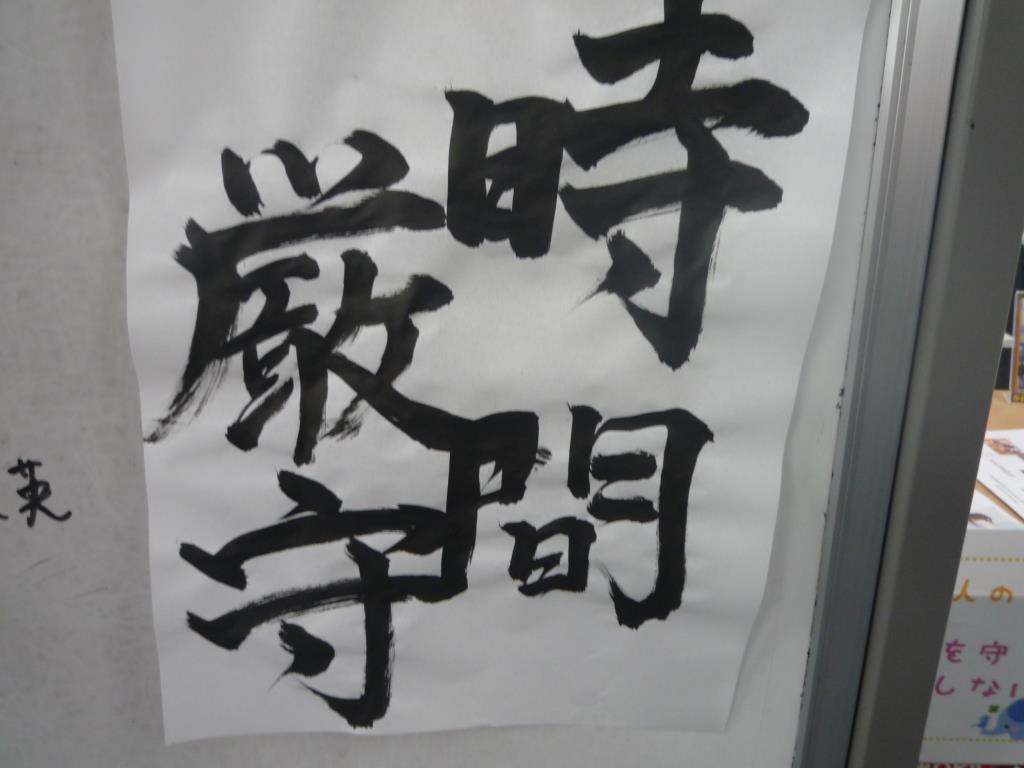 時間
厳守
英
人の
を守
しない